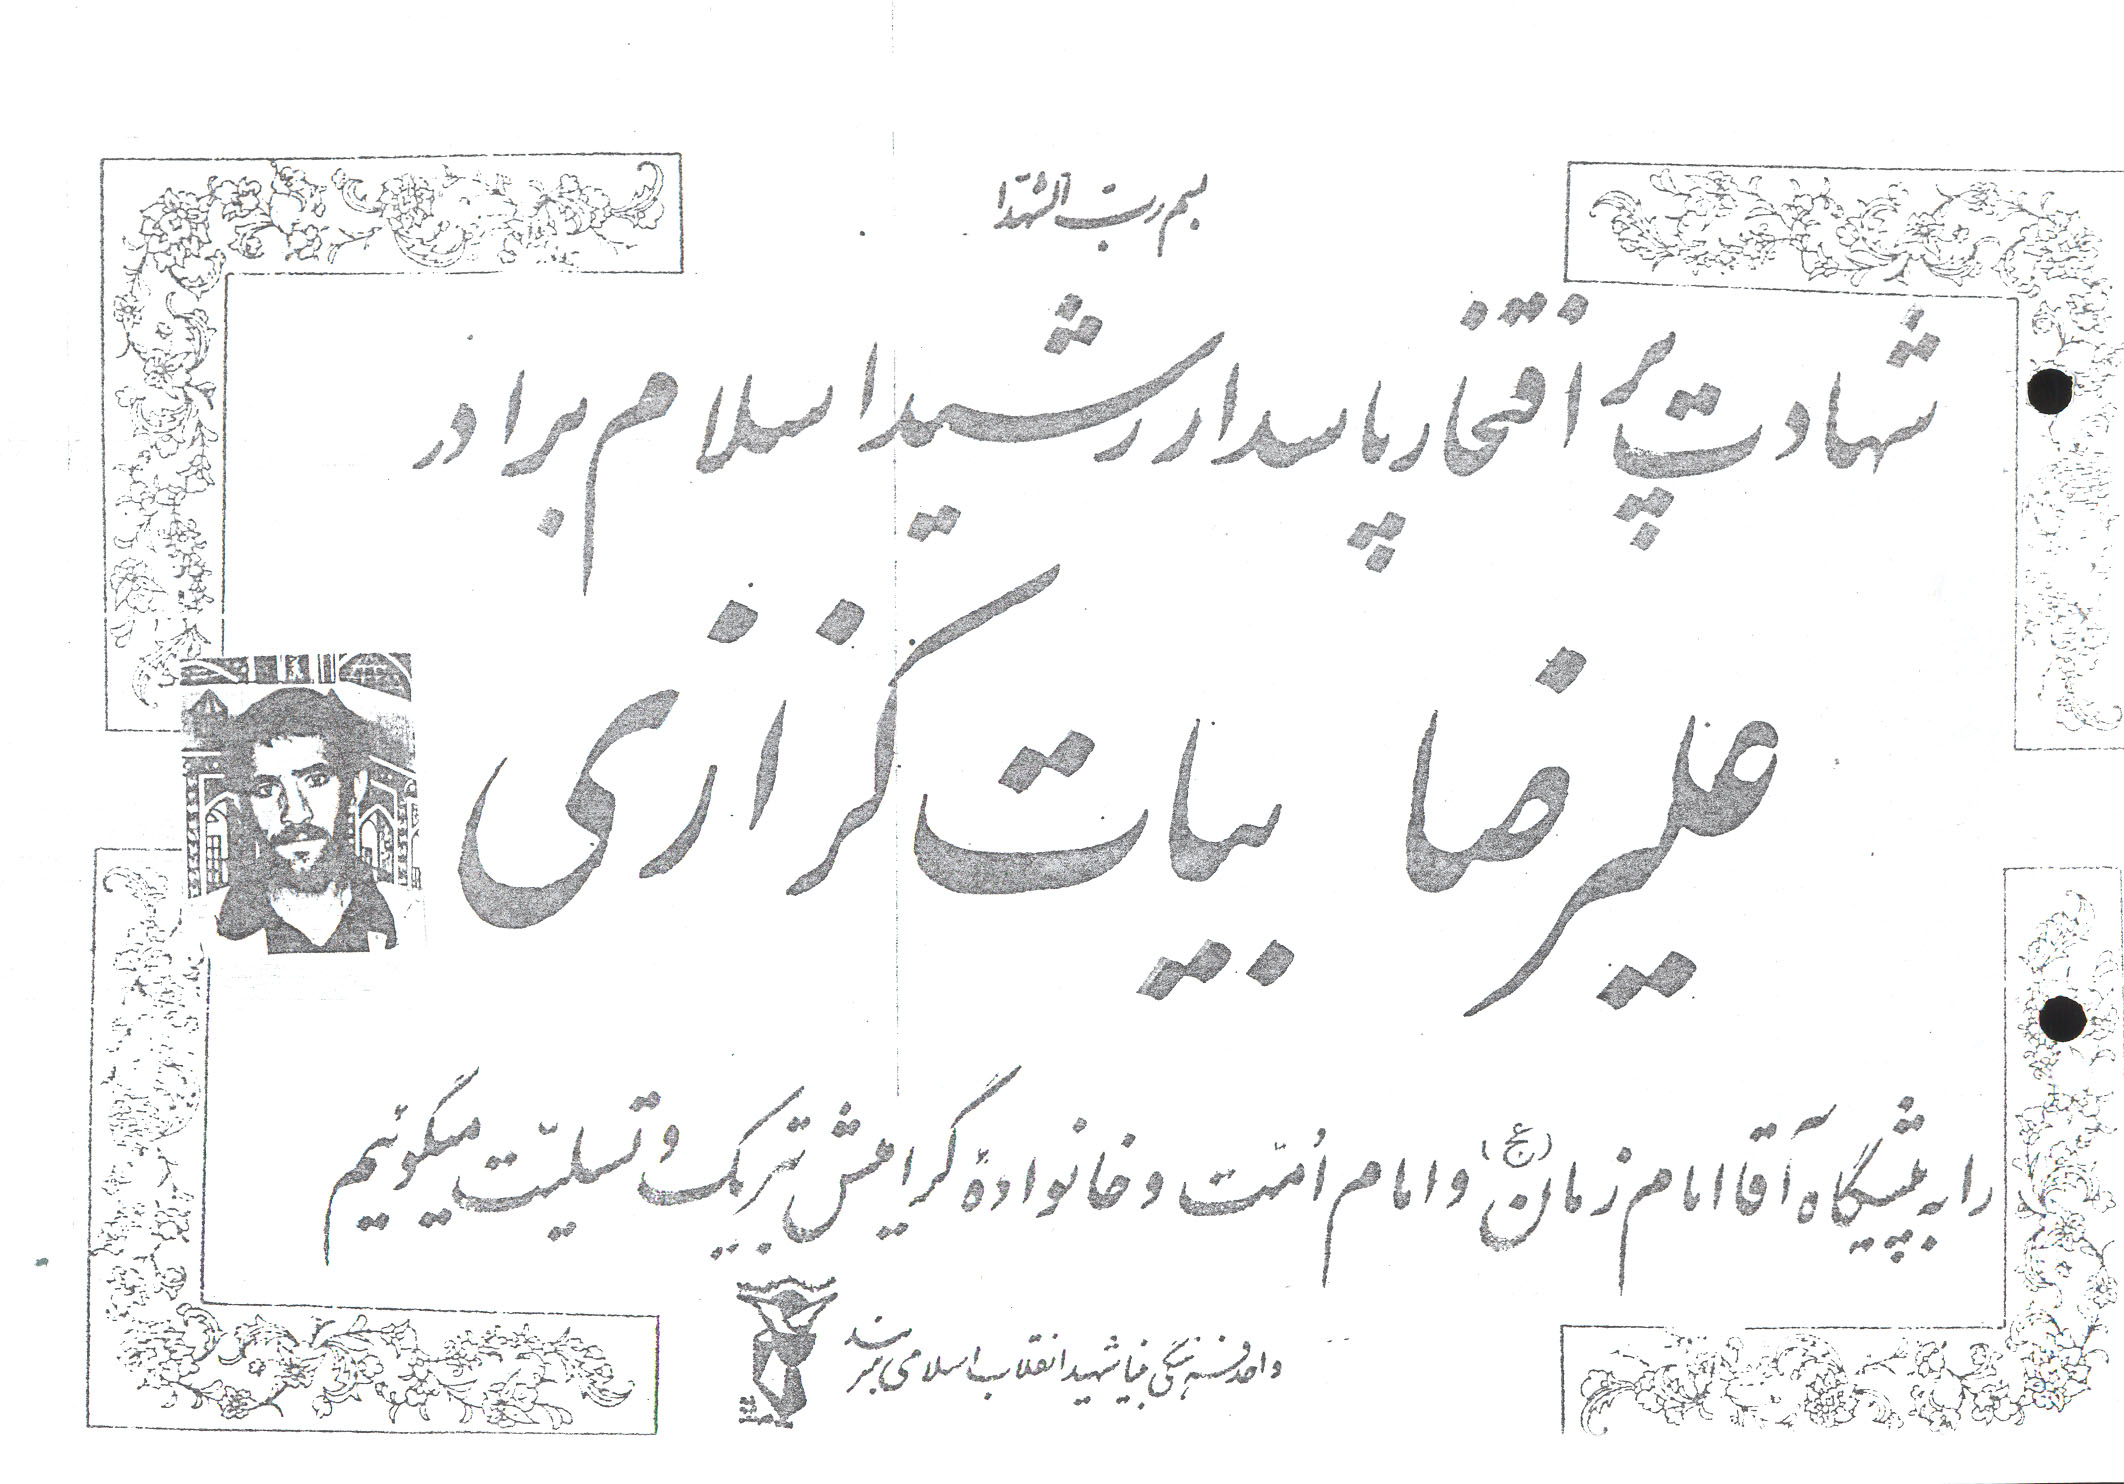 بسم رب الشهدا
شهادت پر افتخار پاسدار رشید اسلام برادر
علیرضا بیات کزازی
را به پیشگاه آقا امام زمان (عج) و امام اُمّت و خانوادهٔ گرامیش تبریک و تسلیّت میگوئیم
واحد فرهنگی بنیاد شهید انقلاب اسلامی